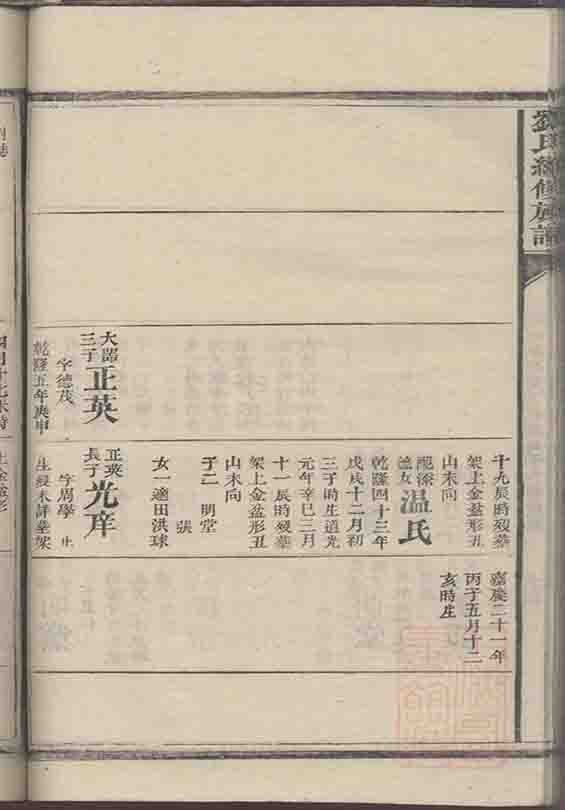 劉氏續修族譜
十九辰時歿葬
架上金盆形丑
山未向
配
德女
温氏
乾隆四十三年
戊戌十二月初
三子時生道光
元年辛巳三月
十一辰時歿葬
架上金盆形丑
山未向
子二 明堂
張
女一適田洪球
正英
長子
光庠
字周學 生
生歿未詳葬架
嘉慶二十一年
丙子五月十二
亥時生
大
三子
正英
字德茂
乾隆五年庚申